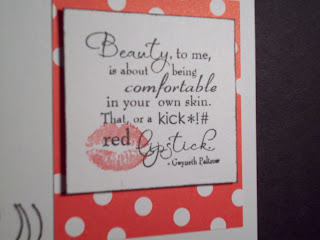 Beauty, to me,
is about being
comfortable
in your own skin.
That, or a kick*!#
red lipstick.
- Gwyneth Paltrow